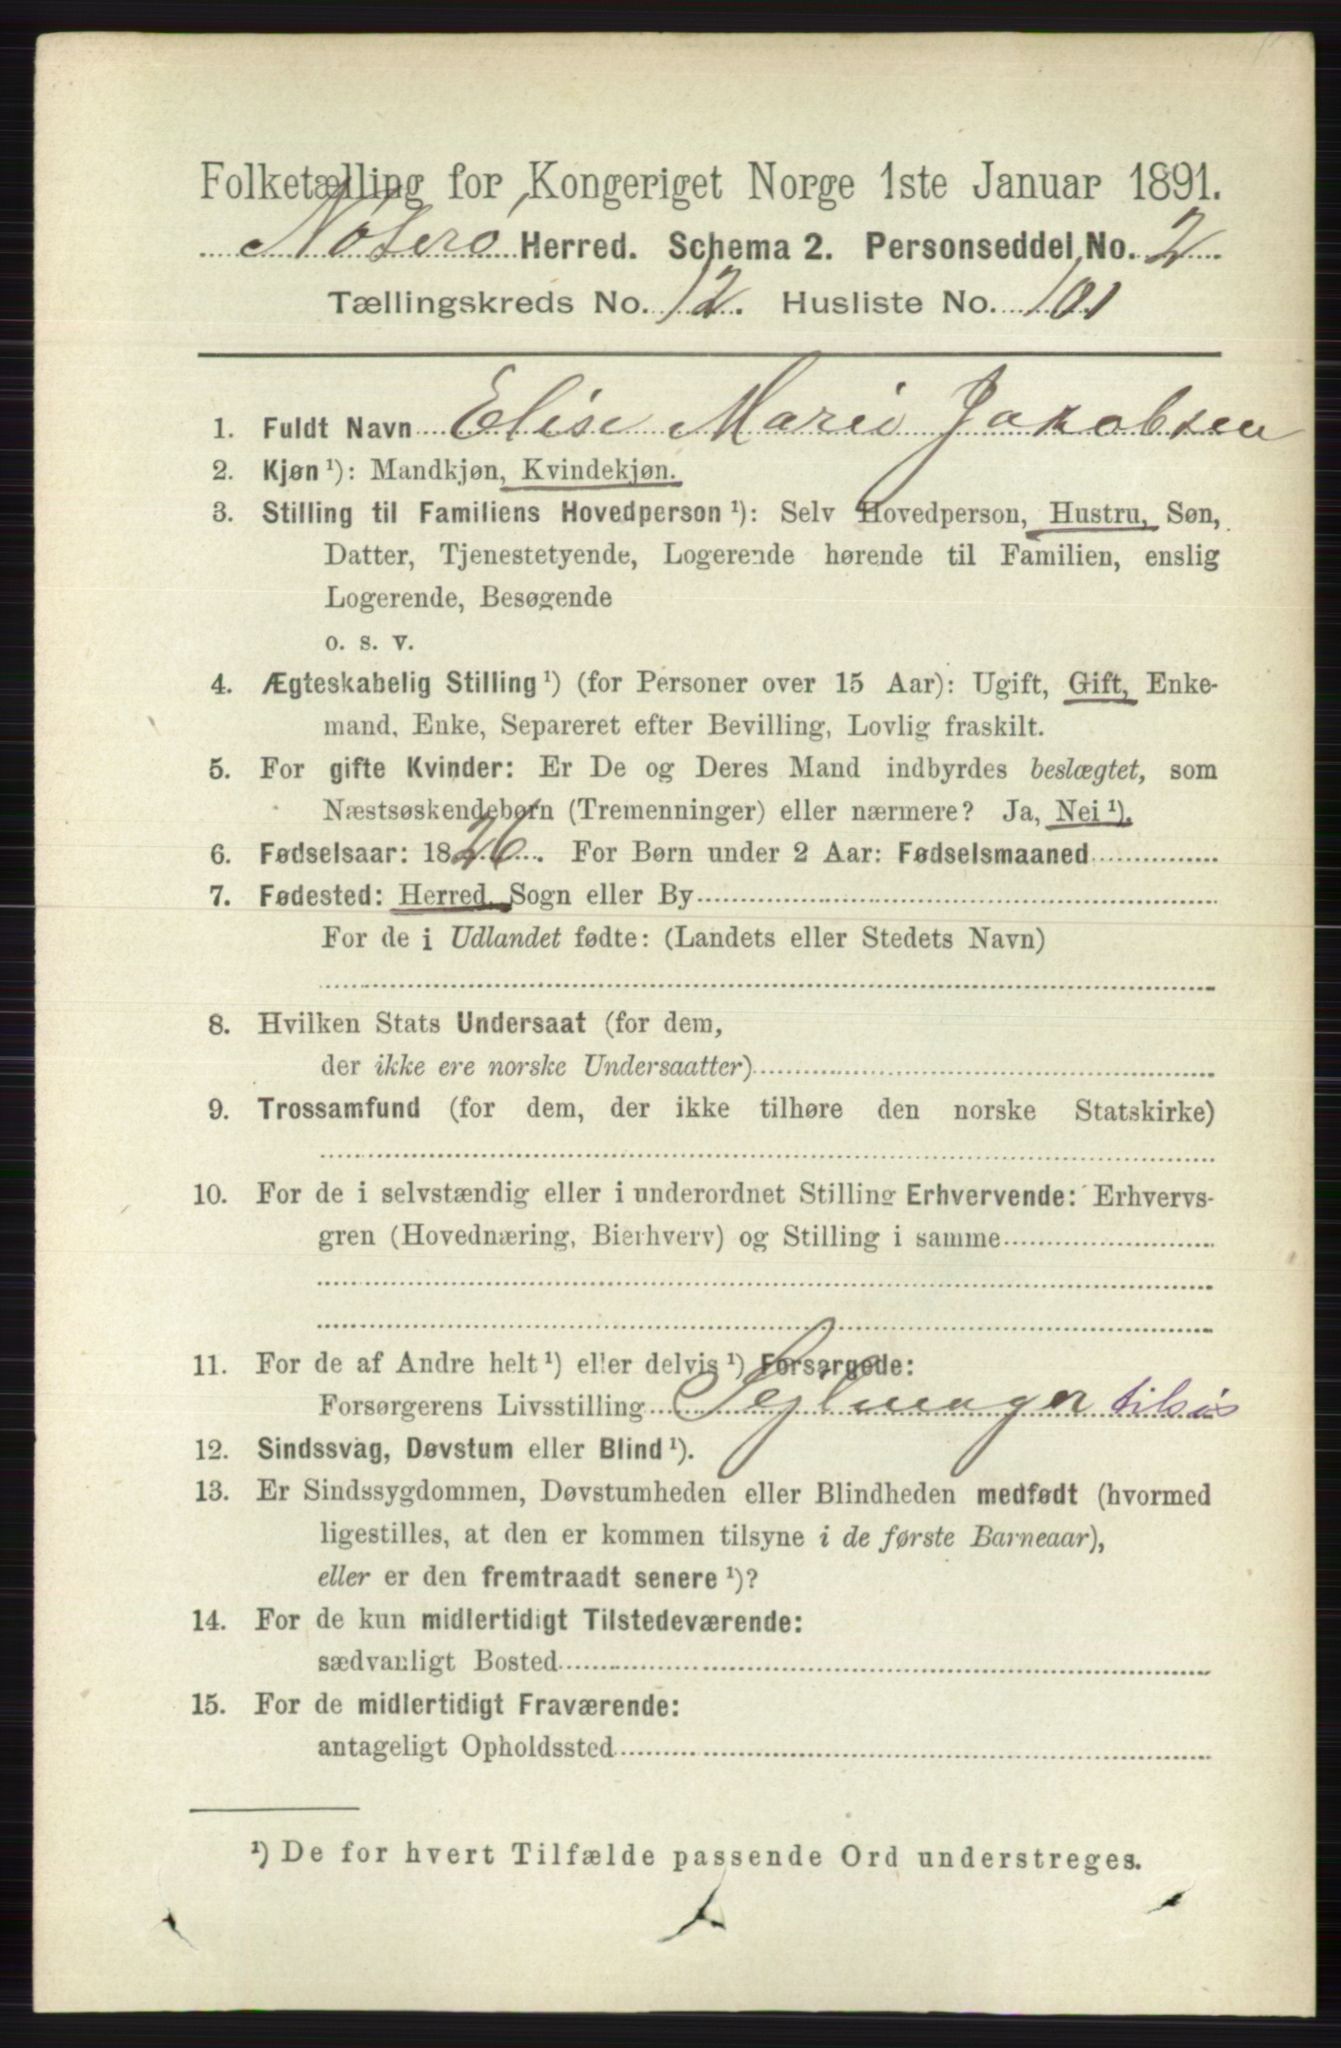 Folketælling for Kongeriget Norge 1ste Januar 1891.
Nøterø Herred. Schema 2. Personseddel No. 2
Tællingskreds No. 12. Husliste No. 101
1. Fuldt Navn Elise Marie Jakobsen
2. Kjøn ¹): Mandkjøn, Kvindekjøn.
3. Stilling til Familiens Hovedperson ¹): Selv Hovedperson, Hustru, Søn,
Datter, Tjenestetyende, Logerende hørende til Familien, enslig
Logerende, Besøgende
o. s. v.
4. Ægteskabelig Stilling ¹) (for Personer over 15 Aar): Ugift, Gift, Enke-
mand, Enke, Separeret efter Bevilling, Lovlig fraskilt.
5. For gifte Kvinder: Er De og Deres Mand indbyrdes beslægtet, som
Næstsøskendebørn (Tremenninger) eller nærmere? Ja, Nei ¹).
6. Fødselsaar: 1826. For Børn under 2 Aar: Fødselsmaaned
7. Fødested: Herred, Sogn eller By
For de i Udlandet fødte: (Landets eller Stedets Navn)
8. Hvilken Stats Undersaat (for dem,
der ikke ere norske Undersaatter)
9. Trossamfund (for dem, der ikke tilhøre den norske Statskirke)
10. For de i selvstændig eller i underordnet Stilling Erhvervende: Erhvervs-
gren (Hovednæring, Bierhverv) og Stilling i samme
11. For de af Andre helt ¹) eller delvis ¹) Forsørgede:
Forsørgerens Livsstilling tilsøs
12. Sindssvag, Døvstum eller Blind ¹).
13. Er Sindssygdommen, Døvstumheden eller Blindheden medfødt (hvormed
ligestilles, at den er kommen tilsyne i de første Barneaar),
eller er den fremtraadt senere ¹)?
14. For de kun midlertidigt Tilstedeværende:
sædvanligt Bosted
15. For de midlertidigt Fraværende:
antageligt Opholdssted
¹) De for hvert Tilfælde passende Ord understreges.